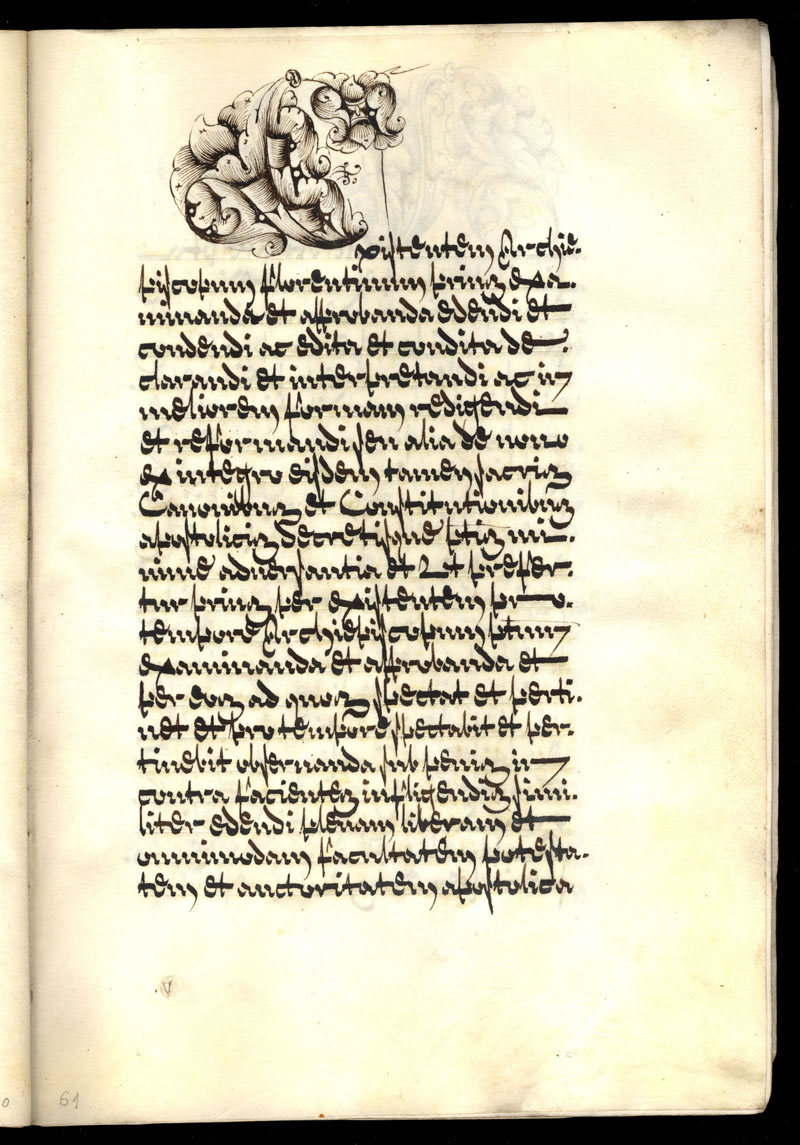 Existentem Archie-
piscopum florentinum prius exa-
minanda et approbanda edendi et
condendi ac edita et condita de-
clarandi et interpretandi ac in
meliorem formam redigendi
et reformandi seu alia de nouo
ex integro eisdem tamen sacris
Canonibus et Constitutionibus
apostolicis decretisque ptis mi-
nime aduersantia et Ut prefer-
tur prius per existentem pro
tempore Archiepiscopum ptum
examinanda et approbanda et
per eos ad quos spectat et perti-
net et pro tempore spectabit et per-
tinebit obseruanda sub penis in
contra facientes infligendis simi-
liter edendi plenam liberam et
omnimodam facultatem potesta-
tem et auctoritatem apostolica
V
61